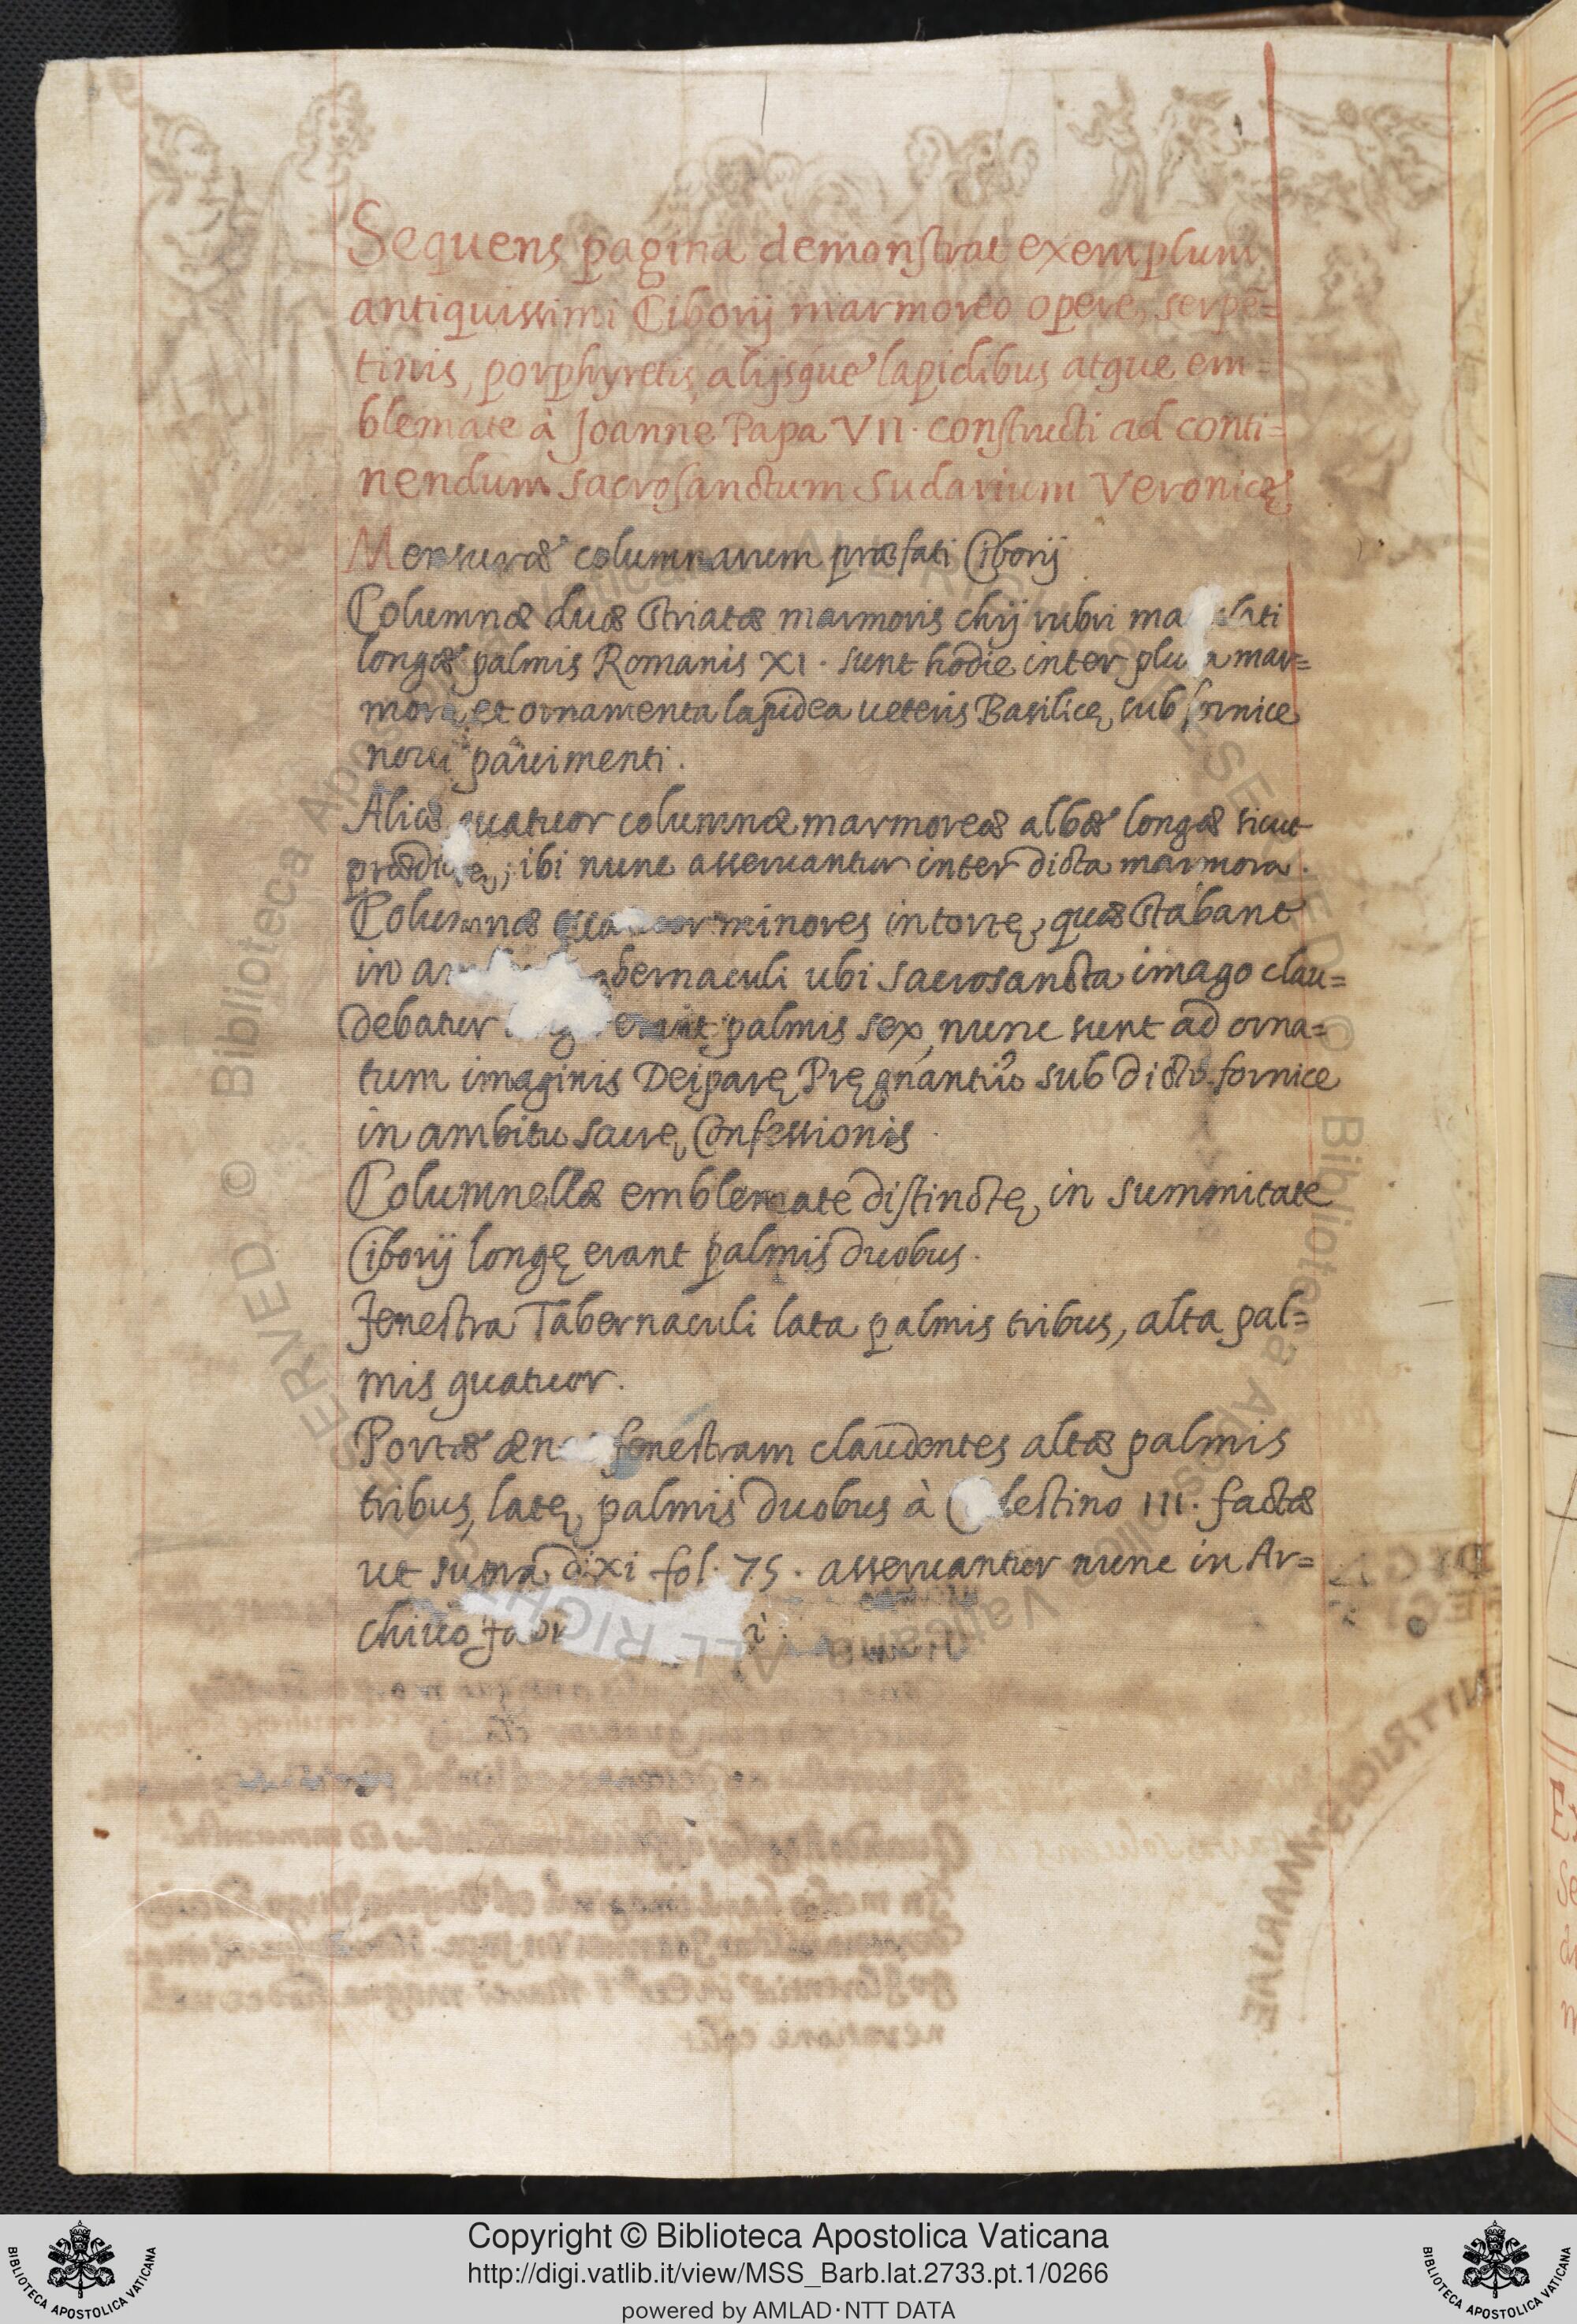 Sequens pagina demonstrat exemplum
antiquissimi Ciborij marmoreo opere, serpē=
tinis, porphyretis, alijsque lapidibus atque em=
blemate à Joanne Papa VII. constructi ad conti=
nendum sacrosanctum Sudarium Veronicę
Mensuræ columnarum præfati Ciborij
Columnæ duæ striatæ marmoris chij rubri
longæ palmis Romanis XI. sunt hodie inter mar=
mora, et ornamenta lapidea ueteris Basilicę, sub fornice
noui pauimenti.
Aliæ quatuor columnæ marmoreæ albæ longæ sicut
ibi nunc asseruantur inter dicta marmora.
Columnæ minores intortę, quæ stabant
in ubi sacrosancta imago clau=
debatur palmis sex, nunc sunt ad orna=
tum imaginis Deiparę Pręgnantiū sub dicto fornice
in ambitu sacrę Confessionis
Columnellæ emblemate distinctę, in summitate
Ciborij longę erant palmis duobus.
Fenestra Tabernaculi lata palmis tribus, alta pal=
mis quatuor.
Portæ fenestram claudentes altæ palmis
tribus, latę, palmis duobus à III. factæ
ut supra dixi fol. 75. asseruantur nunc in Ar=
chiuo
Copyright © Biblioteca Apostolica Vaticana
http://digi.vatlib.it/view/MSS_Barb.lat.2733.pt.1/0266
powered by AMLAD·NTT DATA
BIBLIOTECA APOSTOLICA VATICANA
BIBLIOTECA APOSTOLICA VATICANA